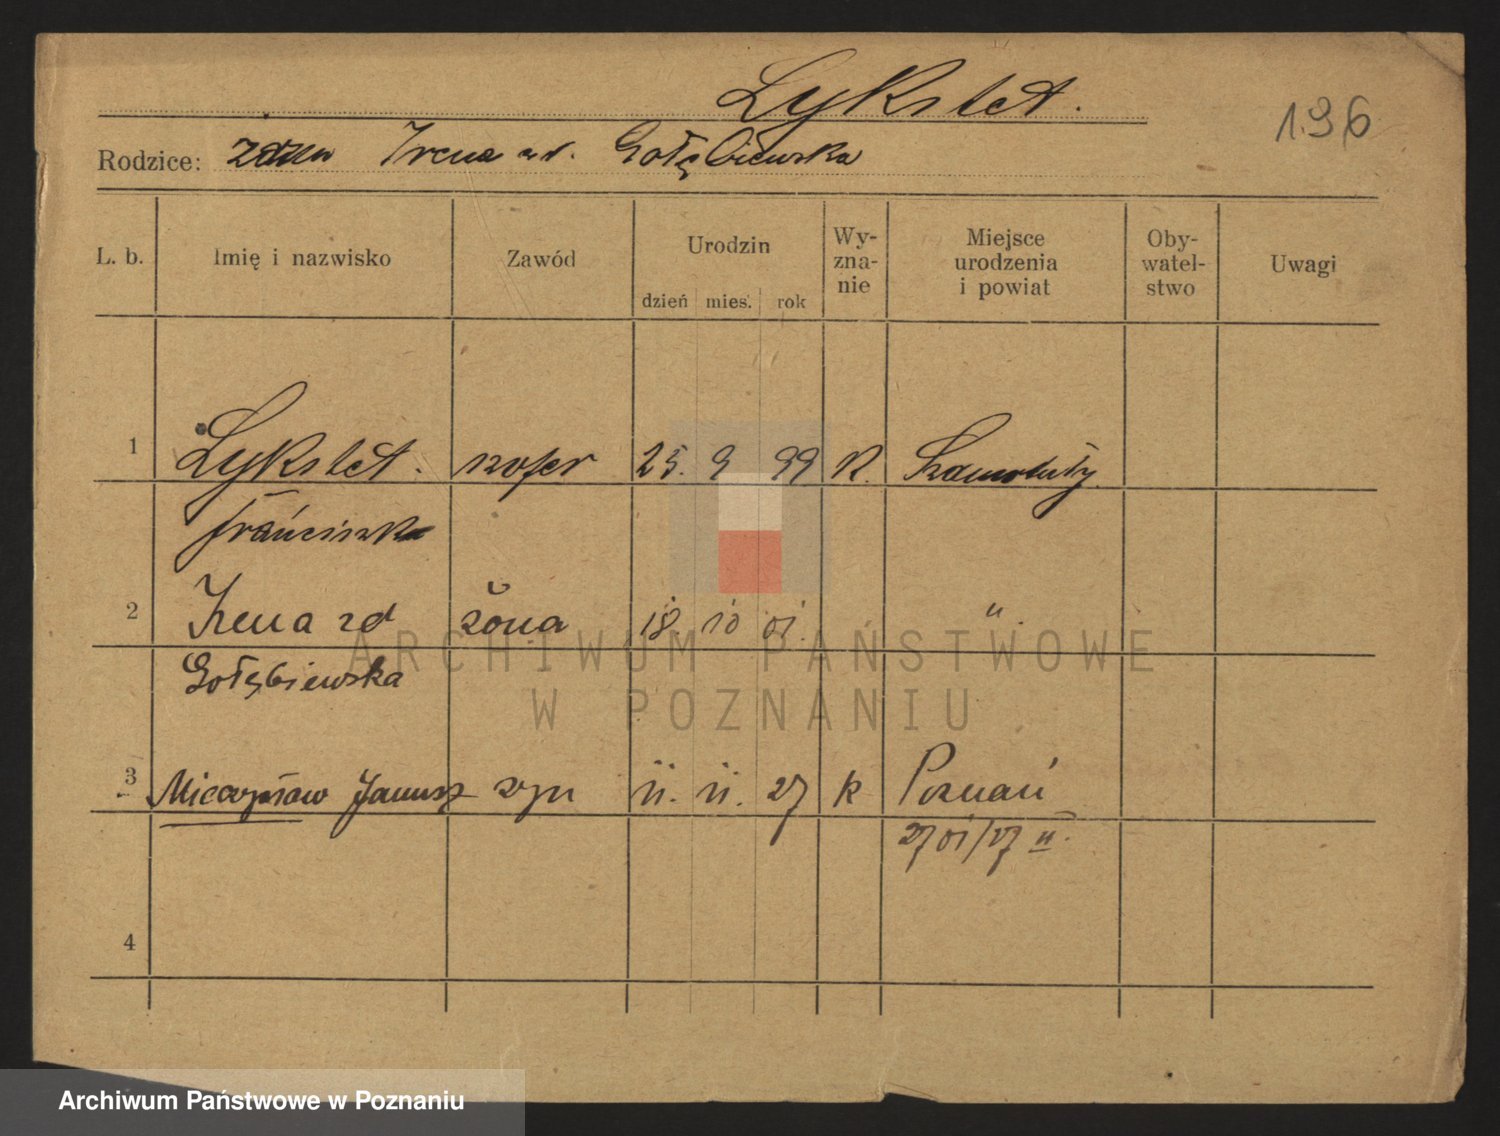 Lykstet.
196
Rodzice: Irena zd. Gołębiewska
L. b. Imię i nazwisko Zawód Urodzin dzień mies. rok Wy-zna-nie Miejsce urodzenia i powiat Oby-watel-stwo Uwagi
1 Lykstet. szofer 25. 9 99 R. Szamotuły
Franciszek
2 Irena zd żona 18. 10 01. "
Gołębiewska
3 Mieczysław Janusz syn 11. 11. 27 k Poznań
27 01/27 II.
4
ARCHIWUM PAŃSTWOWE
W POZNANIU
Archiwum Państwowe w Poznaniu